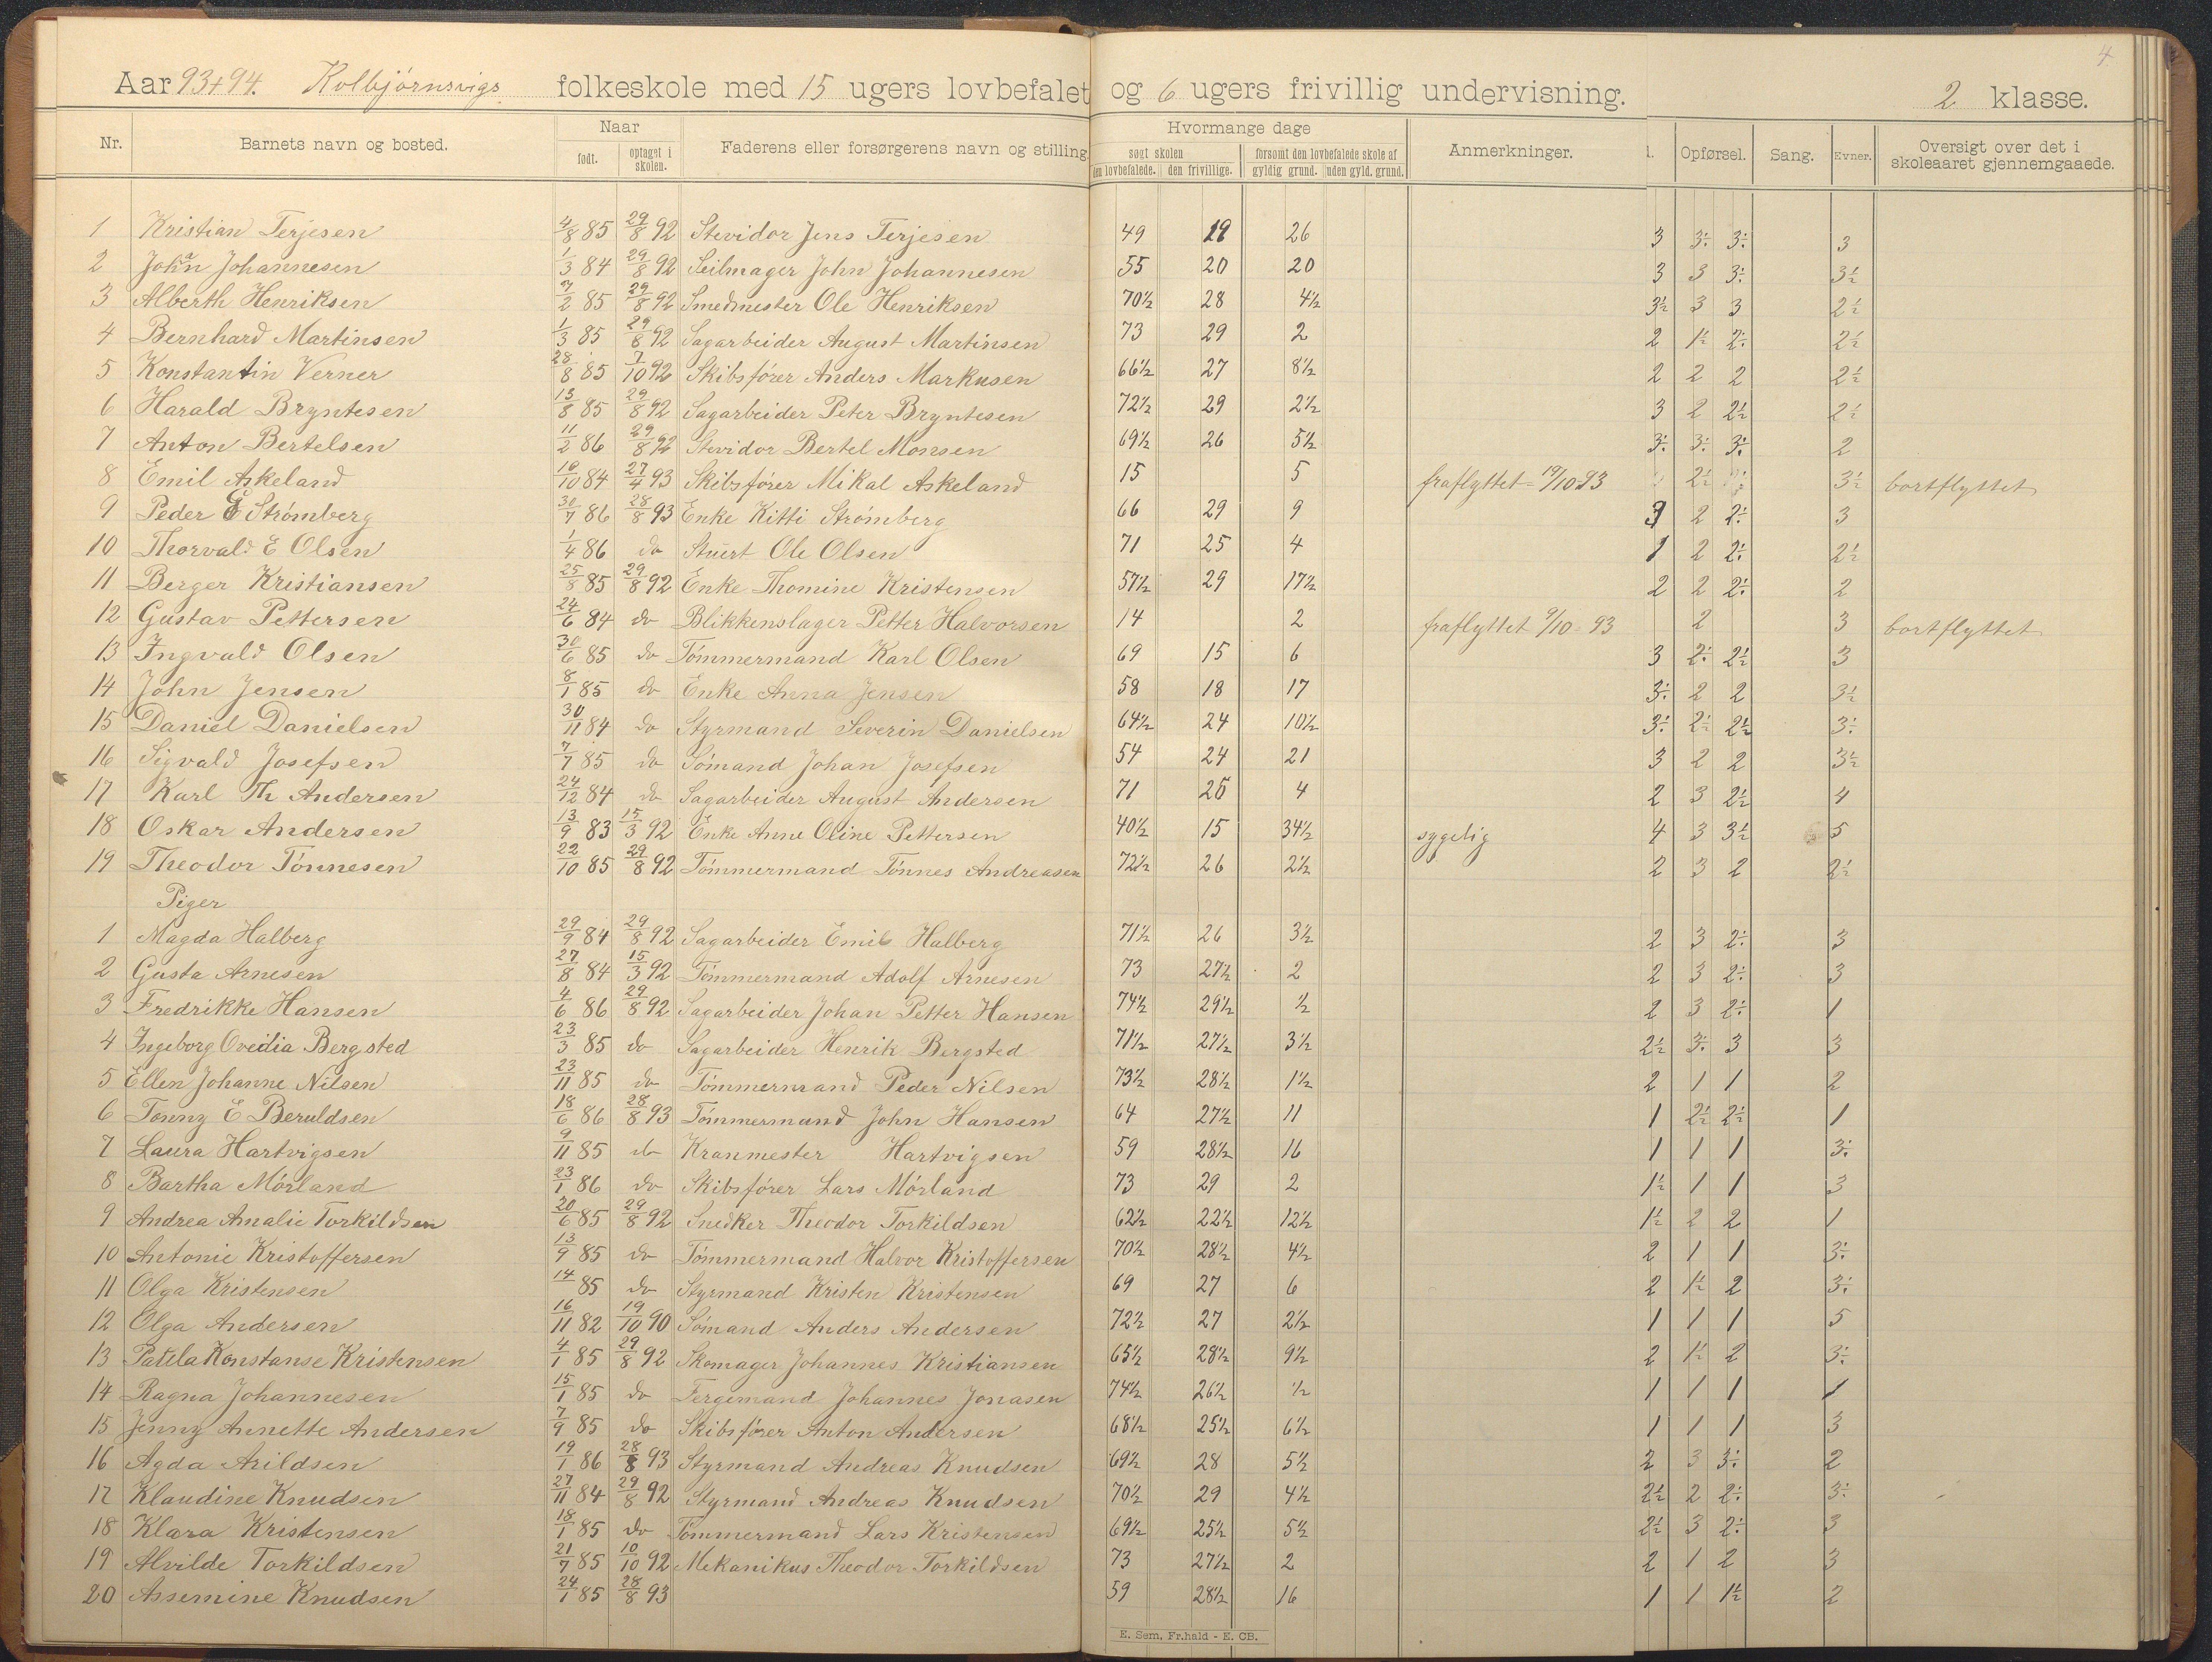 4
Aar 93+94. Kolbjørnsvigs folkeskole med 15 ugers lovbefalet og 6 ugers frivillig undervisning. 2 klasse.
Nr. Barnets navn og bosted. Naar født. optaget i skolen. Faderens eller forsørgerens navn og stilling. Hvormange dage søgt skolen den lovbefalede. den frivillige. forsømt den lovbefalede skole af gyldig grund. uden gyld. grund. Anmerkninger. l. Opførsel. Sang. Evner. Oversigt over det i skoleaaret gjennemgaaede.
1 Kristian Terjesen 4/8 85 29/8 92 Stevidor Jens Terjesen 49 19 26 3 3÷ 3÷ 3
2 Johan Johannesen 1/3 84 29/8 92 Seilmager John Johannesen 55 20 20 3 3 3÷ 3½
3 Alberth Henriksen 7/2 85 29/8 92 Smedmester Ole Henriksen 70½ 28 4½ 3½ 3 3 2½
4 Bernhard Martinsen 1/3 85 29/8 92 Sagarbeider August Martinsen 73 29 2 2 1½ 2÷ 2½
5 Konstantin Verner 28/8 85 7/10 92 Skibsfører Anders Markusen 66½ 27 8½ 2 2 2 2½
6 Harald Bryntesen 13/8 85 29/8 92 Sagarbeider Peter Bryntesen 72½ 29 2½ 3 2 2½ 2½
7 Anton Bertelsen 11/2 86 29/8 92 Stevidor Bertel Monsen 69½ 26 5½ 3÷ 3÷ 3÷ 2
8 Emil Askeland 16/10 84 27/4 93 Skibsfører Mikal Askeland 15 5 fraflyttet 19/10-93 2½ 3½ bortflyttet
9 Peder G Strømberg 30/7 86 28/8 93 Enke Kitti Strømberg 66 29 9 3 2 2÷ 3
10 Thorvald E Olsen 1/4 86 do Stuert Ole Olsen 71 25 4 1 2 2÷ 2½
11 Berger Kristiansen 25/8 85 29/8 92 Enke Thomine Kristensen 57½ 29 17½ 2 2 2÷ 2
12 Gustav Pettersen 24/6 84 do Blikkenslager Petter Halvorsen 14 2 fraflyttet 9/10-93 2 3 bortflyttet
13 Ingvald Olsen 30/6 85 do Tømmermand Karl Olsen 69 15 6 3 2÷ 2½ 3
14 John Jensen 8/1 85 do Enke Anna Jensen 58 18 17 3÷ 2 2 3½
15 Daniel Danielsen 30/11 84 do Styrmand Severin Danielsen 64½ 24 10½ 3÷ 2½ 2½ 3÷
16 Sigvald Josefsen 7/7 85 do Sømand Johan Josefsen 54 24 21 3 2 2 3½
17 Karl Th Andersen 24/12 84 do Sagarbeider August Andersen 71 25 4 2 3 2½ 4
18 Oskar Andersen 13/9 83 15/3 92 Enke Anne Oline Pettersen 40½ 15 34½ sygelig 4 3 3½ 5
19 Theodor Tønnesen 22/10 85 29/8 92 Tømmermand Tønnes Andreasen 72½ 26 2½ 2 3 2 2½
Piger
1 Magda Halberg 29/9 84 29/8 92 Sagarbeider Emil Halberg 71½ 26 3½ 2 3 2÷ 3
2 Gusta Arnesen 27/8 84 15/3 92 Tømmermand Adolf Arnesen 73 27½ 2 2 3 2÷ 3
3 Fredrikke Hansen 4/6 86 29/8 92 Sagarbeider Johan Petter Hansen 74½ 29½ ½ 2 3 2÷ 1
4 Ingeborg Ovedia Bergsted 23/3 85 do Sagarbeider Henrik Bergsted 71½ 27½ 3½ 2½ 3÷ 3 3
5 Ellen Johanne Nilsen 23/11 85 do Tømmermand Peder Nilsen 73½ 28½ 1½ 2 1 1 2
6 Tonny E Beruldsen 18/6 86 28/8 93 Tømmermand John Hansen 64 27½ 11 1 2½ 2½ 1
7 Laura Hartvigsen 9/11 85 do Kranmester Hartvigsen 59 28½ 16 1 1 1 3÷
8 Bartha Mørland 23/1 86 do Skibsfører Lars Mørland 73 29 2 1½ 1 1 3
9 Andrea Amalie Torkildsen 20/6 85 29/8 92 Snedker Theodor Torkildsen 62½ 22½ 12½ 1½ 2 2 1
10 Antonie Kristoffersen 13/9 85 do Tømmermand Halvor Kristoffersen 70½ 28½ 4½ 2 1 1 3÷
11 Olga Kristensen 14/ 85 do Styrmand Kristen Kristensen 69 27 6 2 1½ 2 3÷
12 Olga Andersen 16/11 82 19/10 90 Sømand Anders Andersen 72½ 27 2½ 1 1 1 5
13 Patela Konstanse Kristensen 4/1 85 29/8 92 Skomager Johannes Kristiansen 65½ 28½ 9½ 2 1½ 2 3÷
14 Ragna Johannesen 15/1 85 do Fergemand Johannes Jonasen 74½ 26½ ½ 1 1 1 1
15 Jenny Annette Andersen 7/9 85 do Skibsfører Anton Andersen 68½ 25½ 6½ 1 1 1 3
16 Agda Arildsen 19/1 86 28/8 93 Styrmand Andreas Knudsen 69½ 28 5½ 2 3 3÷ 2
17 Klaudine Knudsen 27/11 84 29/8 92 Styrmand Andreas Knudsen 70½ 29 4½ 2½ 2 2÷ 3÷
18 Klara Kristensen 18/1 85 do Tømmermand Lars Kristensen 69½ 25½ 5½ 2½ 3 2÷ 3
19 Alvilde Torkildsen 21/7 85 10/10 92 Mekanikus Theodor Torkildsen 73 27½ 2 2 1 2 3
20 Assemine Knudsen 24/1 85 28/8 93 59 28½ 16 1 1 1½ 2
E. Sem, Fr.hald - E. CB.